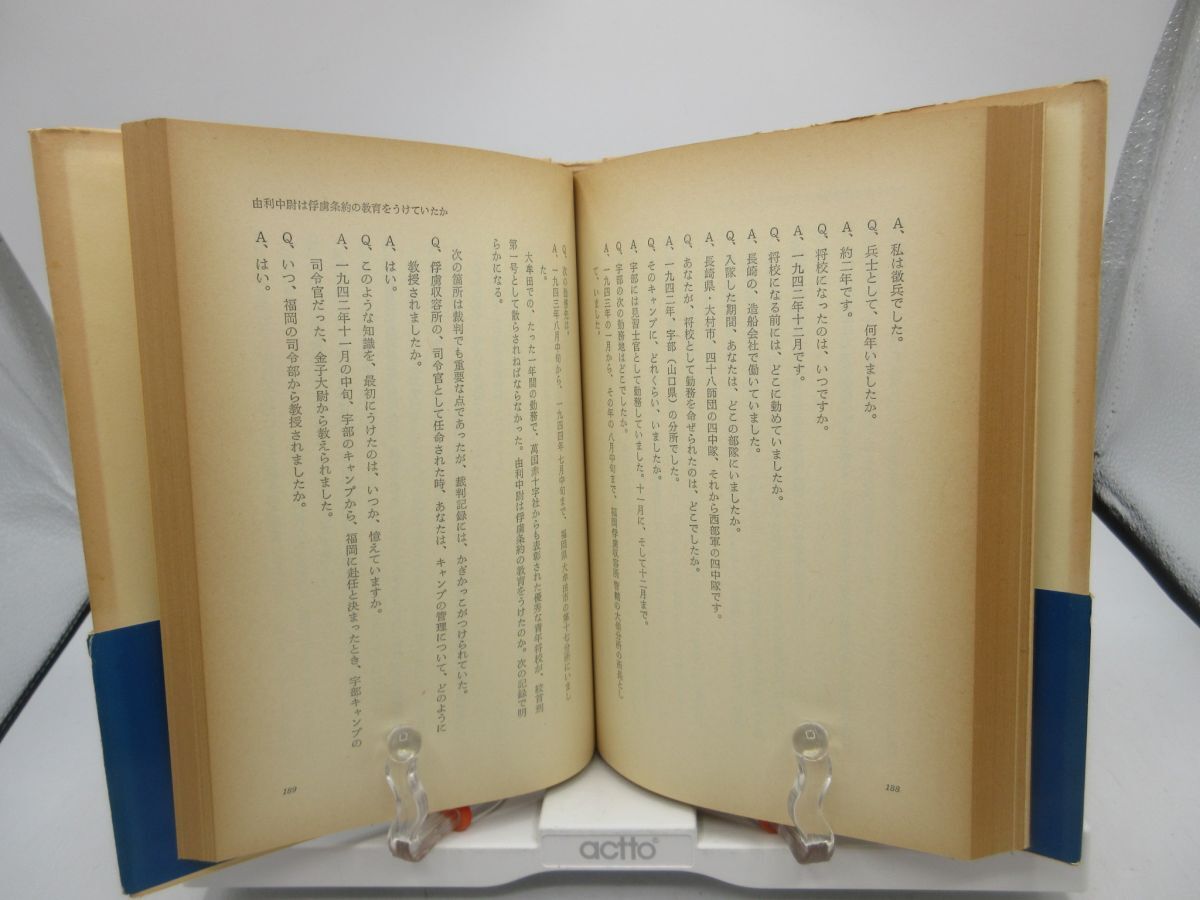 A、私は徴兵でした。
Q、兵士として、何年いましたか。
A、約二年です。
Q、将校になったのは、いつですか。
A、一九四二年十二月です。
Q、将校になる前には、どこに勤めていましたか。
A、長崎の、造船会社で働いていました。
Q、入隊した期間、あなたは、どこの部隊にいましたか。
A、長崎県・大村市、四十八師団の四中隊、それから西部軍の四中隊です。
Q、あなたが、将校として勤務を命ぜられたのは、どこでしたか。
A、一九四二年、宇部（山口県）の分所でした。
Q、そのキャンプに、どれくらい、いましたか。
A、宇部には見習士官として勤務していました。十一月に、そして十二月まで。
Q、宇部の次の勤務地はどこでしたか。
A、一九四三年の一月から、その年の八月中旬まで、福岡俘虜収容所
て、いました。
188
Q、次の勤務先は。
A、一九四三年八月中旬から、一九四四年七月中旬まで、福岡県大牟田市の第十七分所にいまし
た。
大牟田での、たった一年間の勤務で、萬国赤十字社からも表彰された優秀な青年将校が、絞首刑
第一号として散らされねばならなかった。由利中尉は俘虜条約の教育をうけたのか。次の記録で明
らかになる。
次の箇所は裁判でも重要な点であったが、裁判記録には、かぎかっこがつけられていた。
Q、俘虜収容所の、司令官として任命された時、あなたは、キャンプの管理について、どのように
教授されましたか。
A、はい。
Q、このような知識を、最初にうけたのは、いつか、憶えていますか。
A、一九四二年十一月の中旬、宇部のキャンプから、福岡に赴任と決まったとき、宇部キャンプの
司令官だった、金子大尉から教えられました。
Q、いつ、福岡の司令部から教授されましたか。
A、はい。
由利中尉は俘虜条約の教育をうけていたか
189
actto